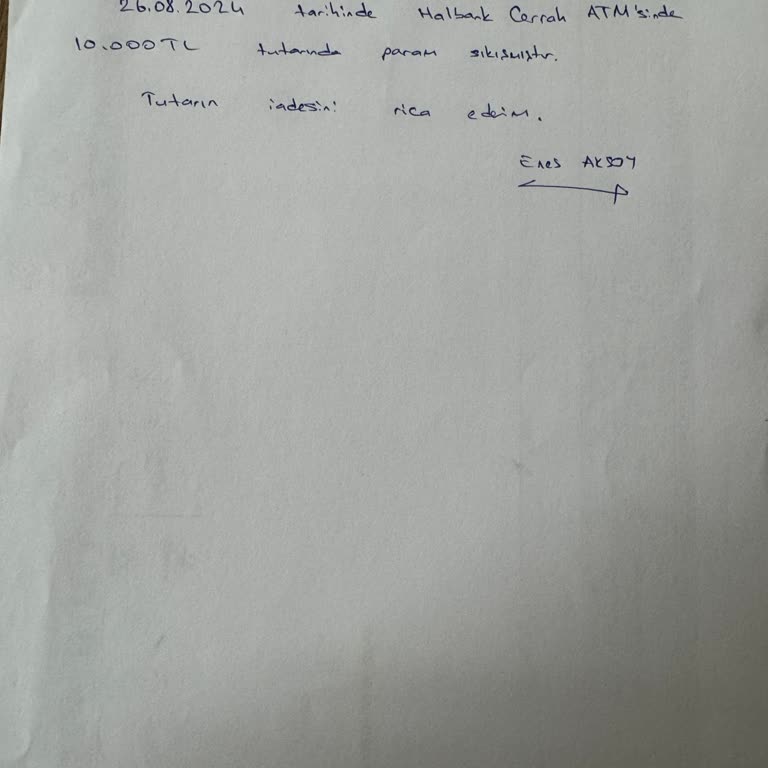 26.08.2024 tarihinde Halbank Cerrah ATM'sinde
10.000TL tutarında param sıkışmıştır.
Tutarın iadesini rica ederim.
Enes AKSOY